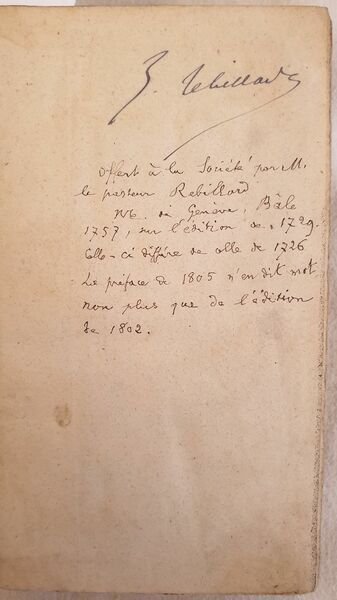 J. Rebillard
Offert à la Société par M.
le pasteur Rebillard
NB. à Genève, Bâle
1757, sur l'édition de 1729.
Celle-ci diffère de celle de 1726
La préface de 1805 n'en dit mot
non plus que de l'édition
de 1802.